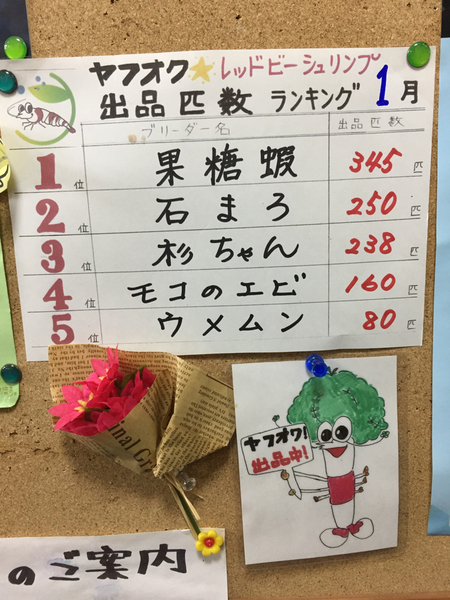 ヤフオク★レッドビーシュリンプ
出品匹数 ランキング 1月
ブリーダー名 出品匹数
1位 果糖蝦 345匹
2位 石まろ 250匹
3位 杉ちゃん 238匹
4位 モコのエビ 160匹
5位 ウメムン 80匹
ヤフオク!
出品中!
のご案内